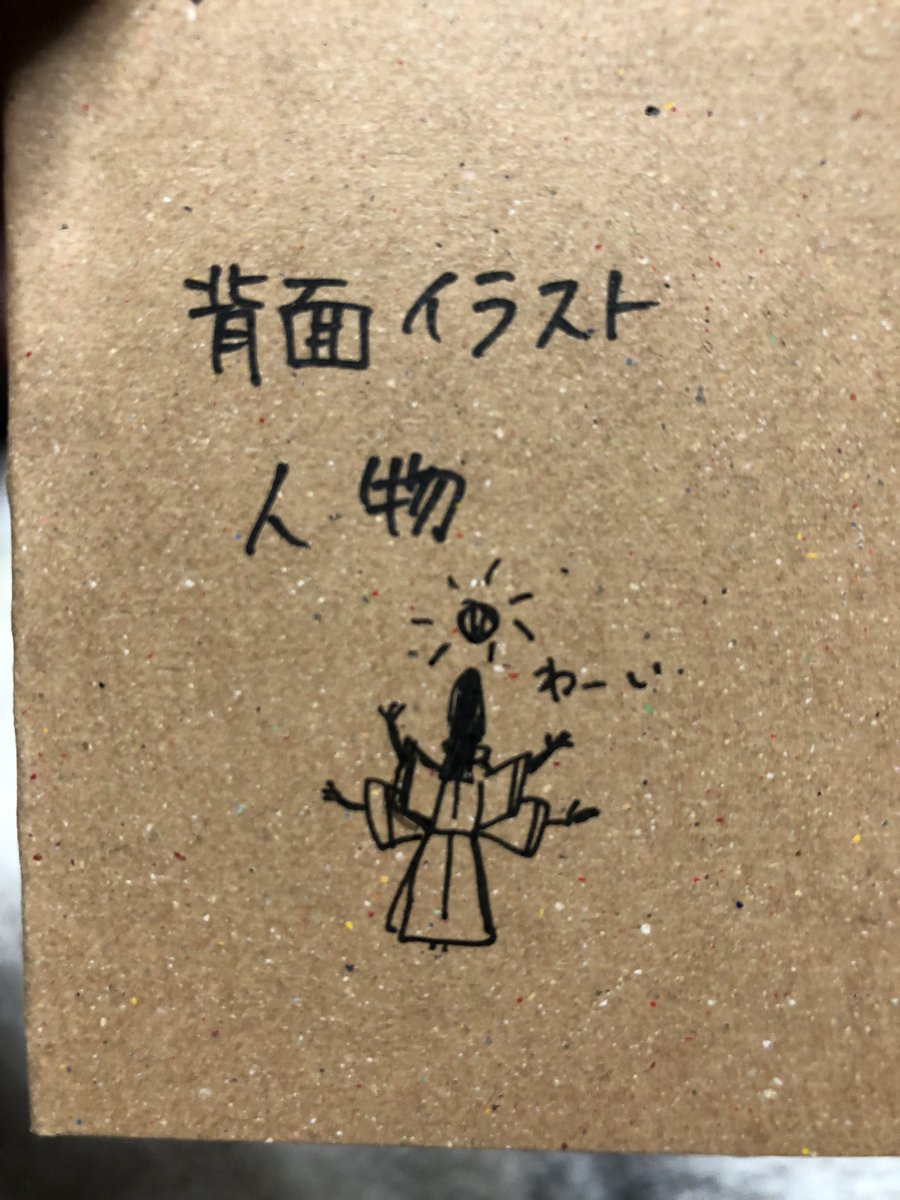 背面イラスト
人物
わーい